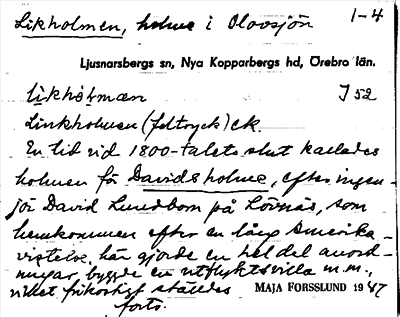 Likholmen, holme i Olovsjön 1-4
Ljusnarsbergs sn, Nya Kopparbergs hd, Örebro län.
likholmæn I 52
Linkholmen (feltryck) ek.
En tid vid 1800-talets slut kallades
holmen för Davidsholme, efter ingen-
jör David Lundbom på Lövnäs, som
hemkommen efter en lång Amerika-
vistelse, här gjorde en hel del anord-
ningar, byggde en utflyktsvilla m.m.,
vilket frikostigt ställdes MAJA FORSSLUND 1947
forts.